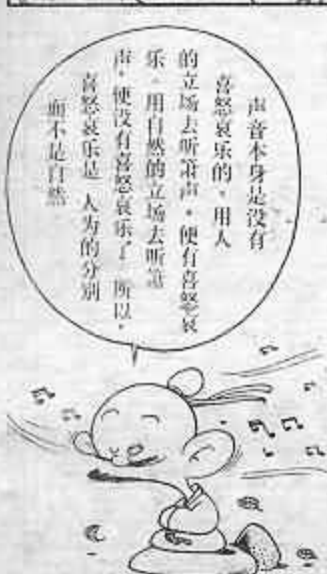 声音本身是没有
喜怒哀乐的。用人
的立场去听箫声，便有喜怒哀
乐。用自然的立场去听箫
声，便没有喜怒哀乐了。所以，
喜怒哀乐是 人为的分别
而不是自然